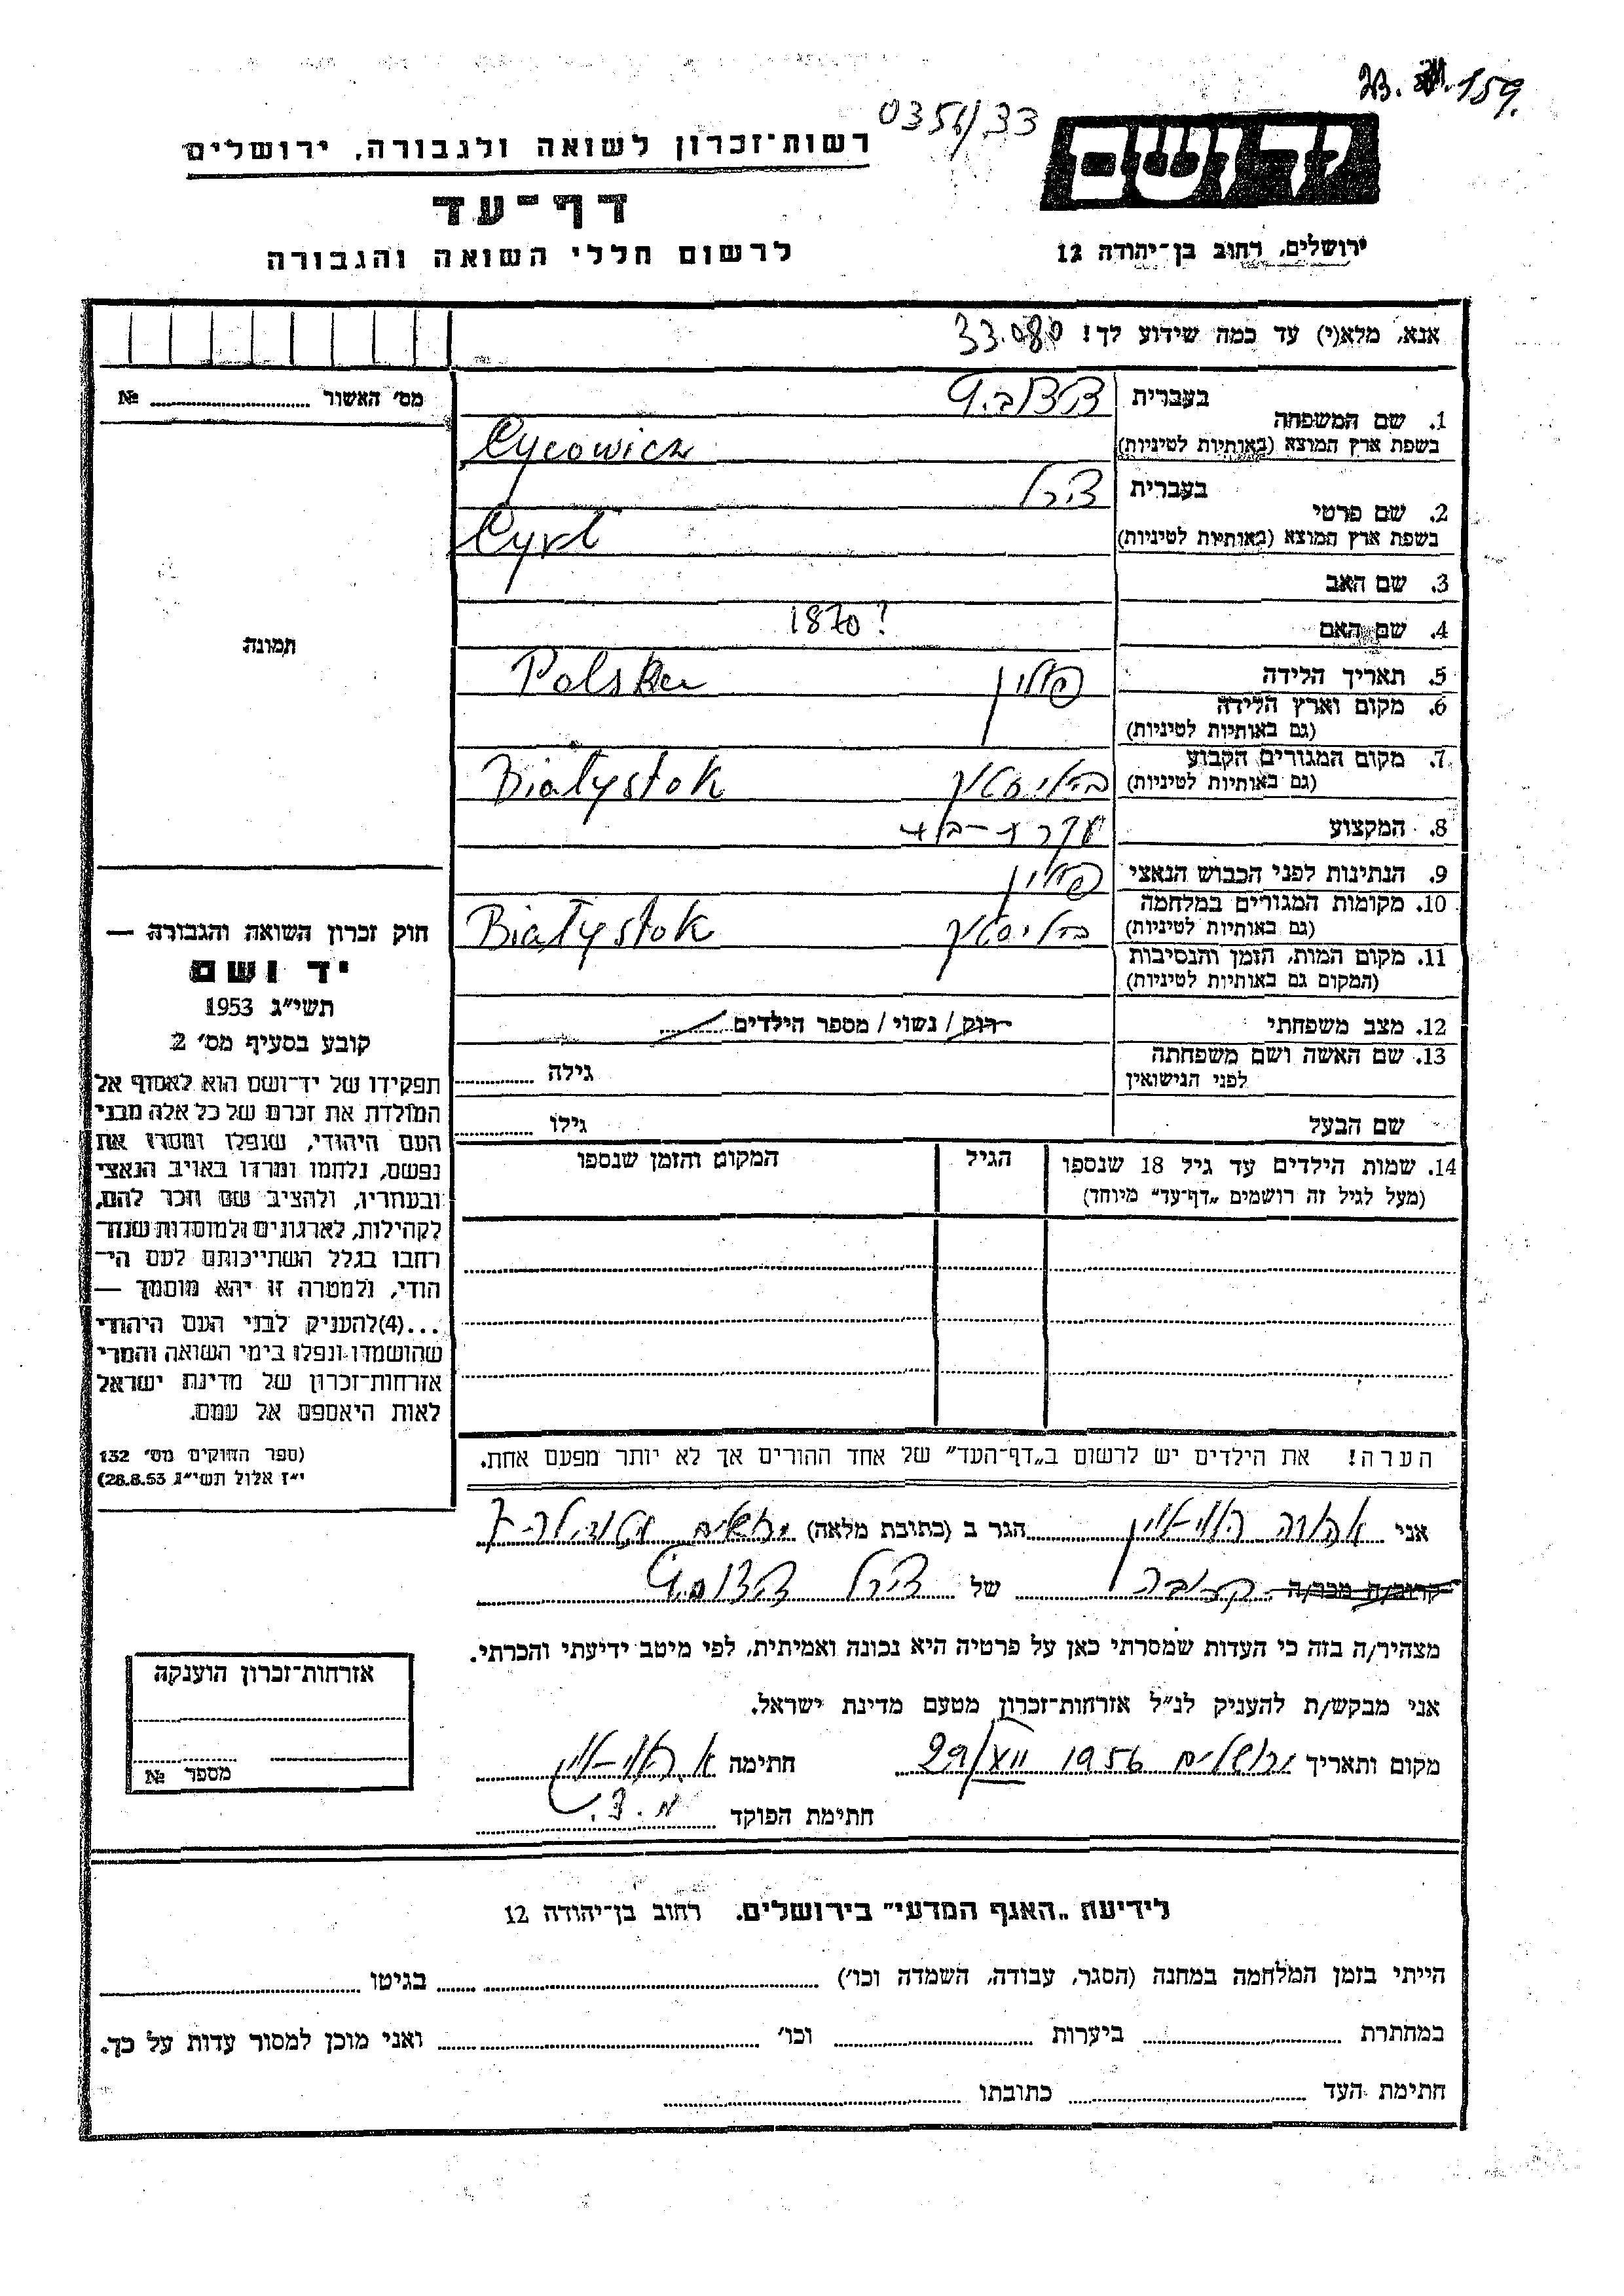 23. 159.
0356/33
רשות־זכרון לשואה ולגבורה, ירושלים
יד ושם
דף־עד
לרשום חללי השואה והגבורה
ירושלים, רחוב בן־יהודה 12
אנא, מלא(י) עד כמה שידוע לך! 33.080
מס׳ האשור №
1. שם המשפחה
בעברית
בשפת ארץ המוצא (באותיות לטיניות) Cycowicz
2. שם פרטי
בעברית צירל
בשפת ארץ המוצא (באותיות לטיניות) Cyrl
3. שם האב
4. שם האם
1870?
5. תאריך הלידה
פולין Polska
6. מקום וארץ הלידה
(גם באותיות לטיניות)
7. מקום המגורים הקבוע
(גם באותיות לטיניות) ביאליסטוק Białystok
8. המקצוע עקרת-בית
9. הנתינות לפני הכבוש הנאצי פולין
10. מקומות המגורים במלחמה
(גם באותיות לטיניות) ביאליסטוק Białystok
11. מקום המות, הזמן והנסיבות
(המקום גם באותיות לטיניות)
12. מצב משפחתי רווק / נשוי / מספר הילדים
13. שם האשה ושם משפחתה
לפני הנישואין
גילה
שם הבעל
גילו
14. שמות הילדים עד גיל 18 שנספו
(מעל לגיל זה רושמים „דף־עד״ מיוחד)
הגיל
המקום והזמן שנספו
תמונה
חוק זכרון השואה והגבורה —
יד ושם
תשי״ג 1953
קובע בסעיף מס׳ 2
תפקידו של יד־ושם הוא לאסוף אל
המולדת את זכרם של כל אלה מבני
העם היהודי, שנפלו ומסרו את
נפשם, נלחמו ומרדו באויב הנאצי
ובעוזריו, ולהציב שם וזכר להם,
לקהילות, לארגונים ולמוסדות שנח־
רבו בגלל השתייכותם לעם הי־
הודי, ולמטרה זו יהא מוסמך —
...(4)להעניק לבני העם היהודי
שהושמדו ונפלו בימי השואה והמרי
אזרחות־זכרון של מדינת ישראל
לאות היאספם אל עמם.
(ספר החוקים מס׳ 132
י״ז אלול תשי״ג 28.8.53)
הערה! את הילדים יש לרשום ב„דף־העד״ של אחד ההורים אך לא יותר מפעם אחת.
אני הגר ב (כתובת מלאה) ירושלים
קרוב/ה מכר/ה קרובה של צירל
מצהיר/ה בזה כי העדות שמסרתי כאן על פרטיה היא נכונה ואמיתית, לפי מיטב ידיעתי והכרתי.
אני מבקש/ת להעניק לנ״ל אזרחות־זכרון מטעם מדינת ישראל.
מקום ותאריך ירושלים 1956 29/XII חתימה
חתימת הפוקד
אזרחות־זכרון הוענקה
מספר №
לידיעת „האגף המדעי״ בירושלים, רחוב בן־יהודה 12
הייתי בזמן המלחמה במחנה (הסגר, עבודה, השמדה וכו׳) בגיטו
במחתרת ביערות וכו׳ ואני מוכן למסור עדות על כך.
חתימת העד כתובתו